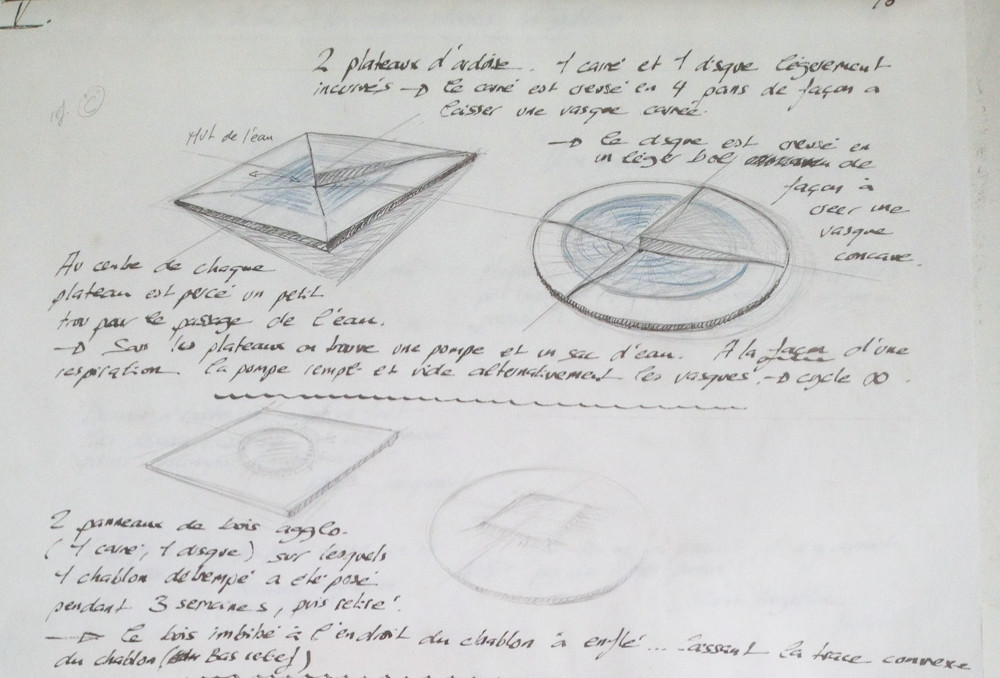 V.
2 plateaux d'ardoise. 1 carré et 1 disque légèrement
incurvés → le carré est creusé en 4 pans de façon a
laisser une vasque carrée.
→ le disque est creusé en
un léger bol de
façon à
creer une
vasque
concave.
MVT de l'eau
Au centre de chaque
plateau est percé un petit
trou pour le passage de l'eau.
→ Sous les plateaux on trouve une pompe et un sac d'eau. A la façon d'une
respiration. la pompe remplt et vide alternativement les vasques. → cycle ∞.
2 panneaux de bois agglo.
(1 carré, 1 disque) sur lesquels
1 chablon détrempé a été posé
pendant 3 semaines, puis retiré.
→ le bois imbibé à l'endroit du chablon à enflé... laissant la trace convexe
du chablon (Bas relief)